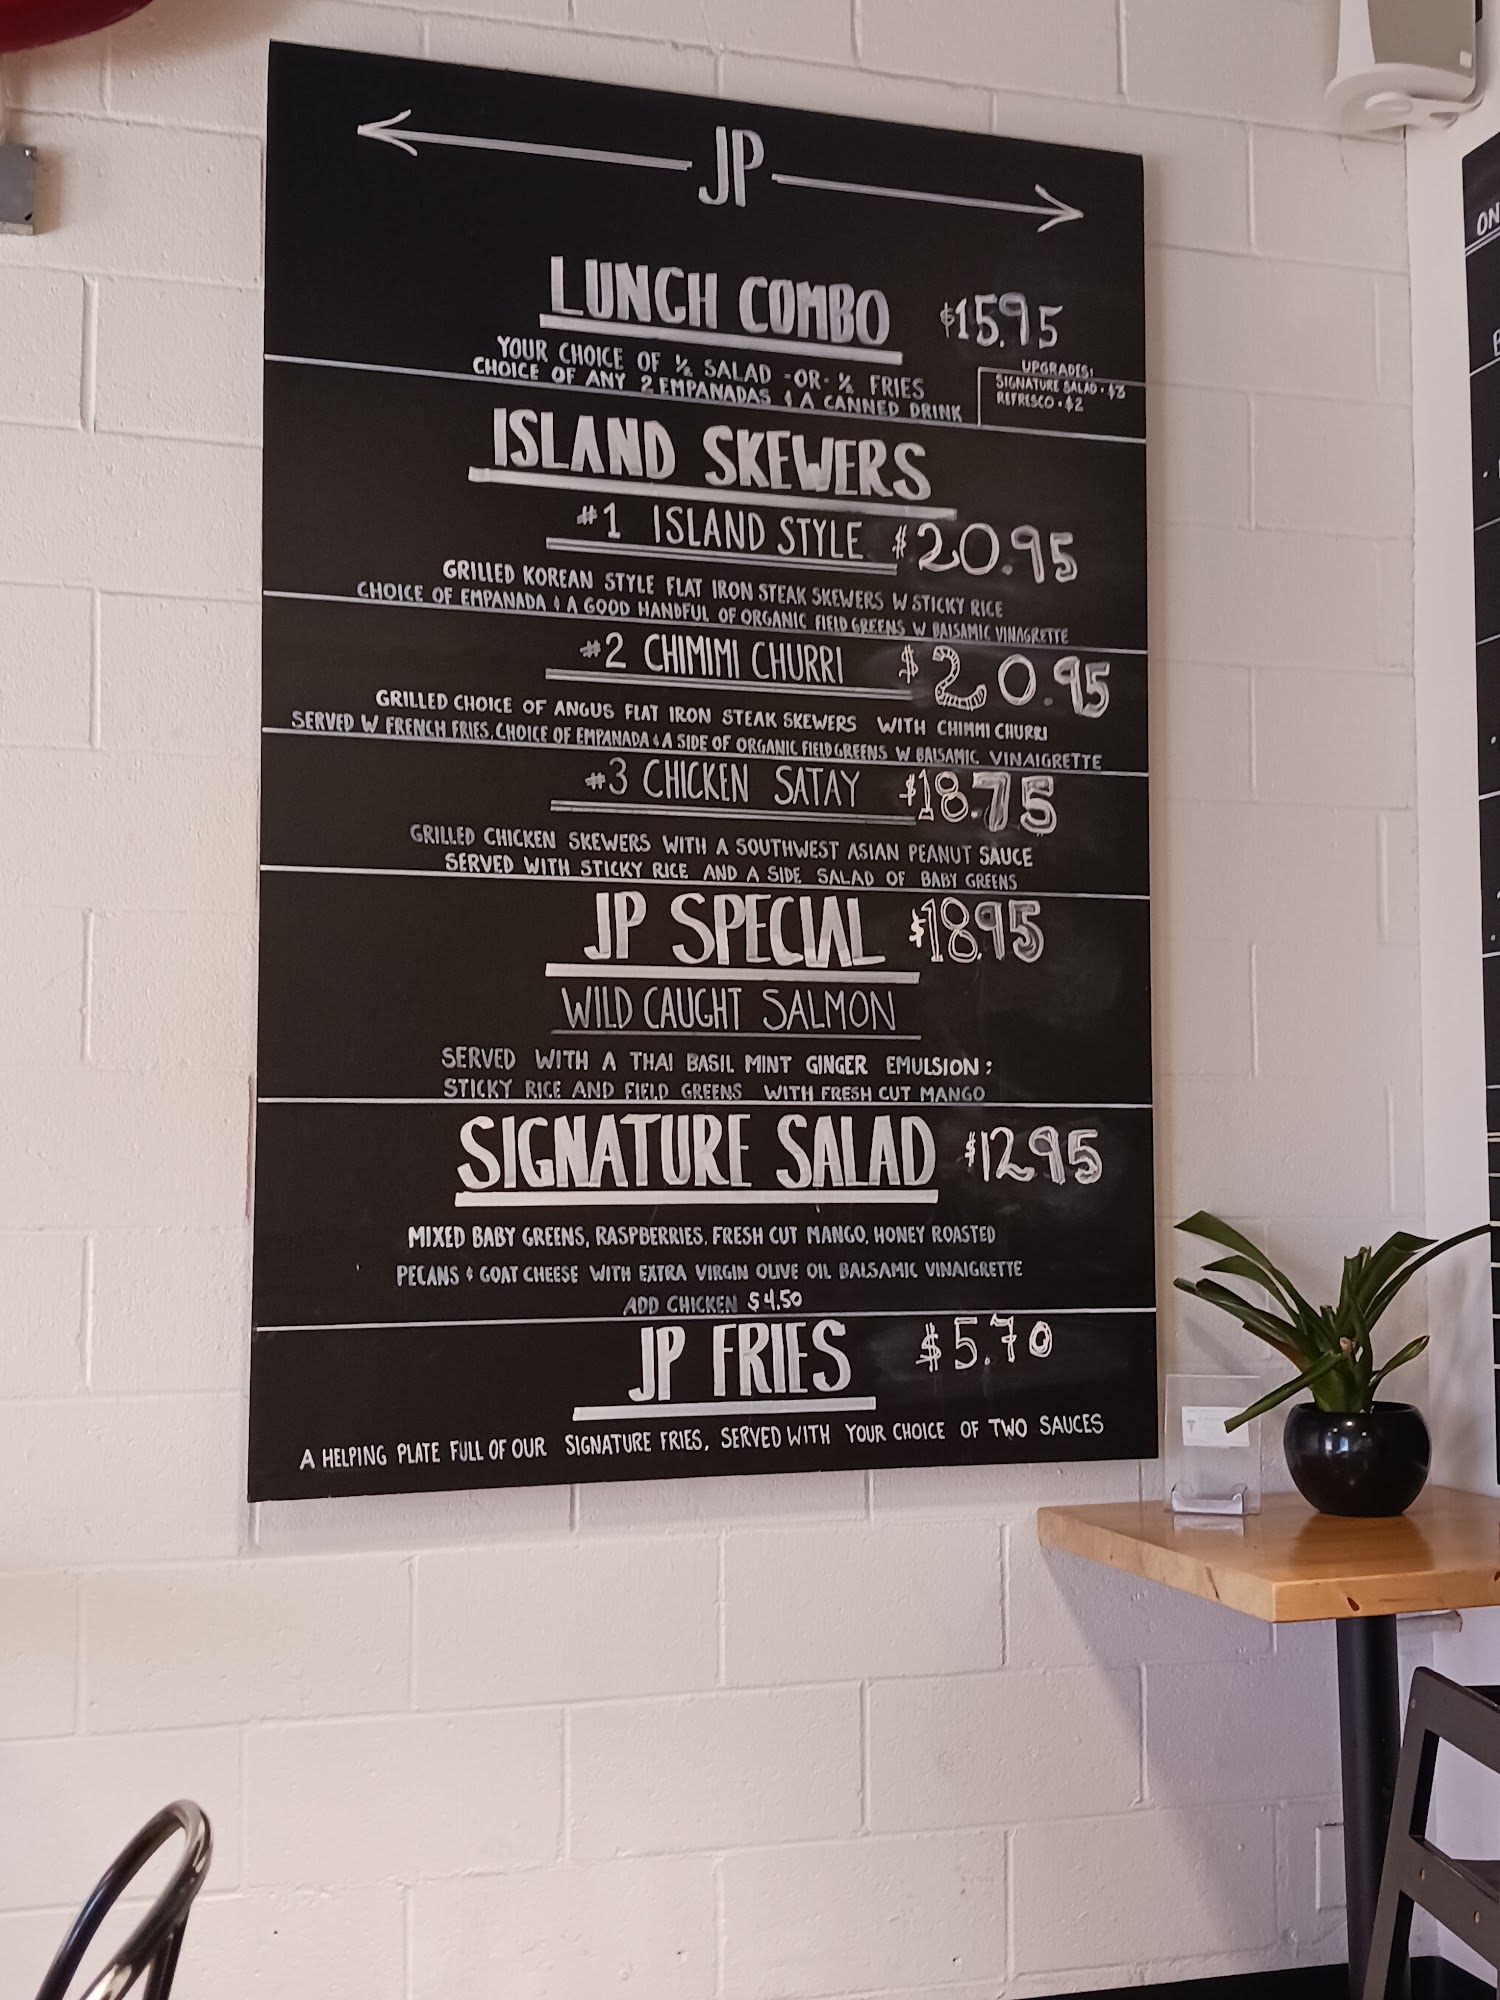 JP
LUNCH COMBO $15.95
YOUR CHOICE OF ½ SALAD -OR- ½ FRIES
CHOICE OF ANY 2 EMPANADAS & A CANNED DRINK
UPGRADES:
SIGNATURE SALAD • $3
REFRESCO • $2
ISLAND SKEWERS
#1 ISLAND STYLE $20.95
GRILLED KOREAN STYLE FLAT IRON STEAK SKEWERS W STICKY RICE
CHOICE OF EMPANADA & A GOOD HANDFUL OF ORGANIC FIELD GREENS W BALSAMIC VINAGRETTE
#2 CHIMIMI CHURRI $20.95
GRILLED CHOICE OF ANGUS FLAT IRON STEAK SKEWERS WITH CHIMMI CHURRI
SERVED W FRENCH FRIES, CHOICE OF EMPANADA & A SIDE OF ORGANIC FIELD GREENS W BALSAMIC VINAIGRETTE
#3 CHICKEN SATAY $18.75
GRILLED CHICKEN SKEWERS WITH A SOUTHWEST ASIAN PEANUT SAUCE
SERVED WITH STICKY RICE AND A SIDE SALAD OF BABY GREENS
JP SPECIAL $18.95
WILD CAUGHT SALMON
SERVED WITH A THAI BASIL MINT GINGER EMULSION:
STICKY RICE AND FIELD GREENS WITH FRESH CUT MANGO
SIGNATURE SALAD $12.95
MIXED BABY GREENS, RASPBERRIES, FRESH CUT MANGO, HONEY ROASTED
PECANS & GOAT CHEESE WITH EXTRA VIRGIN OLIVE OIL BALSAMIC VINAIGRETTE
ADD CHICKEN $4.50
JP FRIES $5.70
A HELPING PLATE FULL OF OUR SIGNATURE FRIES, SERVED WITH YOUR CHOICE OF TWO SAUCES
ON